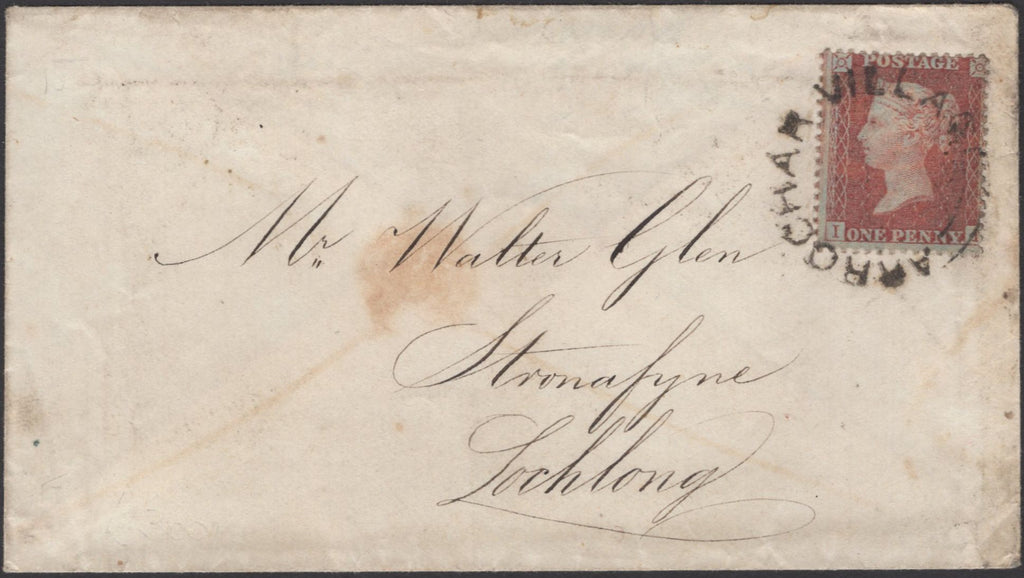 POSTAGE
ARROCHAR VILLA
I ONE PENNY
Mr. Walter Glen
Stronafyne
Lochlong